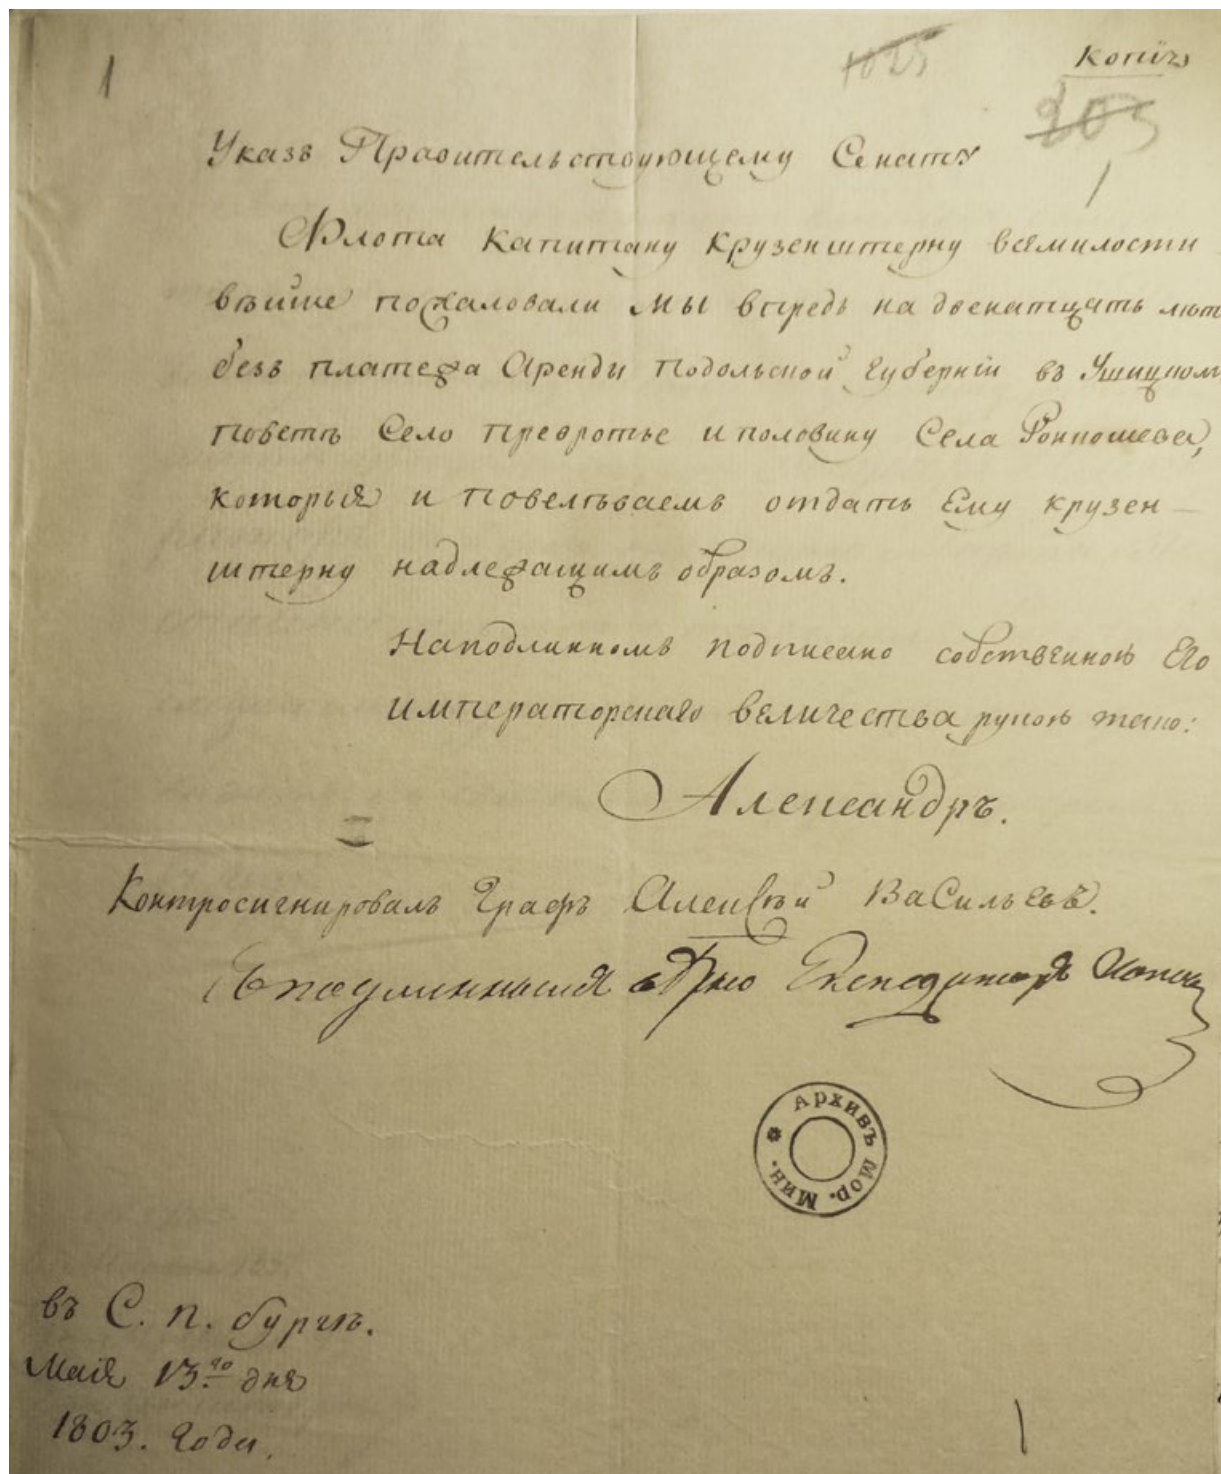 1
1025
Копія
203
1
Указъ Правительствующему Сенату
Флота Капитану Крузенштерну всемилости
вѣйше пожаловали Мы впредь на двенатцать лѣт
безъ платежа Аренды Подольской Губерніи въ Ушицком
Поветѣ Село Превротье и половину Села
которыя и Повелѣваемъ отдать Ему Крузен –
штерну надлежащимъ образомъ.
На подлинномъ подписано собственною Его
Императорскаго Величества рукою тако:
Александръ.
Контросигнировалъ Графъ Алексѣй Васильевъ.
Съ подлиннымъ Экспедиторъ
Архивъ Мор. Мин.
въ С. П. бургѣ.
Маія 13го дня
1803. Года.